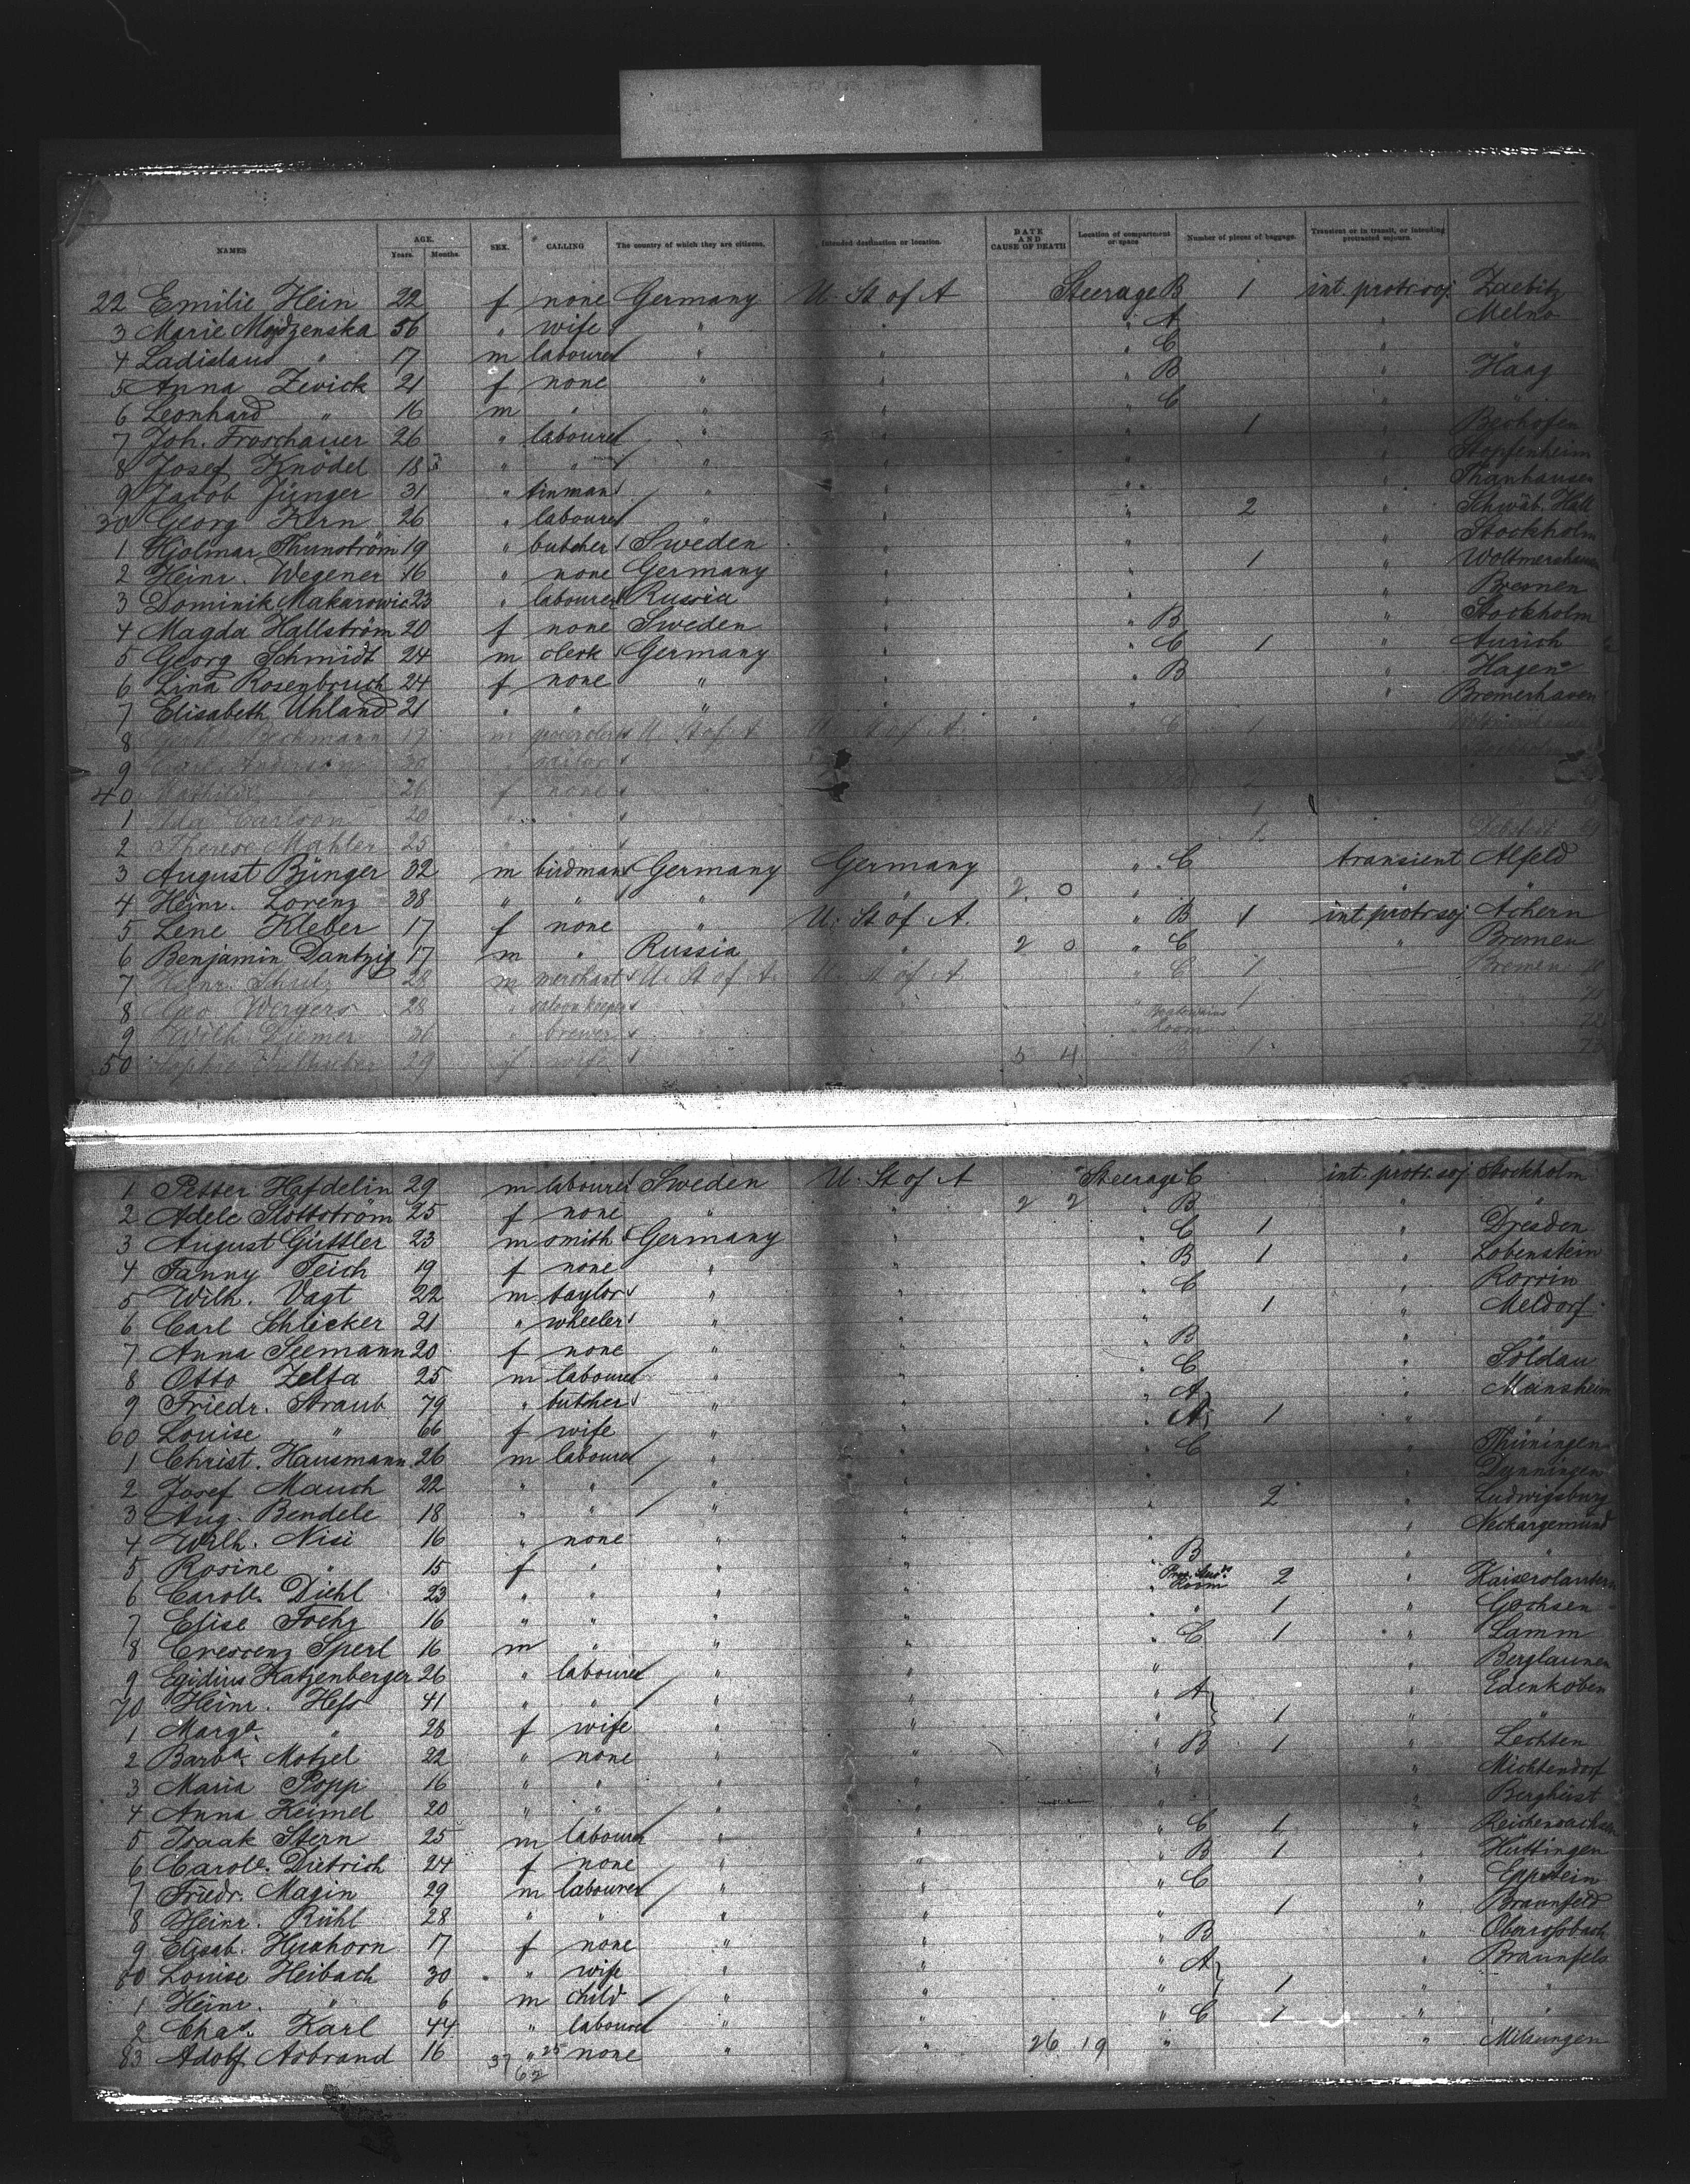 NAMES AGE. Years. Months. SEX. CALLING The country of which they are citizens. Intended destination or location. DATE AND CAUSE OF DEATH Location of compartment or space Number of pieces of baggage. Transient or in transit, or intending protracted sojourn.
22 Emilie Hein 22 f none Germany U. St of A Steerage B 1 int. protr. soj. Zaebitz
3 Marie Mojdzenska 56 " wife " " " A " Melno
4 Ladislaus " 17 m labourer " " " C " "
5 Anna Zwick 21 f none " " " B " Haag
6 Leonhard " 16 m " " " " C "
7 Joh. Froschauer 26 " labourer " " " 1 " Bechofen
8 Josef Knödel 18 " " " " " " Stopfenheim
9 Jacob Jünger 31 " tinman " " " " Thunhausen
30 Georg Kern 26 " labourer " " " 2 " Schwäb. Hall
1 Hjolmar Thunström 19 " butcher Sweden " " " Stockholm
2 Heinr. Wegener 16 " none Germany " " 1 " Woltmershausen
3 Dominik Makarowic 23 " labourer Russia " " " Bremen
4 Magda Hallström 20 f none Sweden " " B " Stockholm
5 Georg Schmidt 24 m clerk Germany " " C 1 " Aurich
6 Lina Rosenbruch 24 f none " " " B " Hagen
7 Elisabeth Uhland 21 " " " " " " Bremerhaven
8 Beckmann 17 m U. St of A U. St of A. C 1
9 Carl Anderson 30 " sailor
40 Mathilde " 26 f none " 2
1 Ida Carlson 20 " " 1
2 Therese Mahler 25 " 1
3 August Bünger 32 m birdman Germany Germany " C transient Alfeld
4 Heinr. Lorenz 38 " " " " 2 0 " " "
5 Lene Kleber 17 f none " U. St of A. " B 1 int. protr. soj. Achern
6 Benjamin Dantzig 17 m " Russia " 2 0 " C " Bremen
7 Heinr. Schulz 28 m merchant U. St of A. U. St of A " C 1 Bremen
8 Geo Wergers 28 " saloon keeper " 1
9 Wilh Diemer 36 " brewer " Room
50 Sophie 29 f wife " 5 4 B 1
1 Petter Hafdelin 29 m labourer Sweden U. St of A Steerage C int. protr. soj. Stockholm
2 Adele Slottström 25 f none " " 2 2 " B " "
3 August Güttler 23 m smith Germany " " C 1 " Dresden
4 Fanny Teich 19 f none " " " B 1 " Lobenstein
5 Wilh. Vagt 22 m taylor " " " C " Rorrin
6 Carl Schlicker 21 " wheeler " " " 1 " Meldorf
7 Anna Seemann 20 f none " " " B " "
8 Otto Zelta 25 m labourer " " " C " Soldau
9 Friedr. Straub 79 " butcher " " " A " Mönsheim
60 Louise " 66 f wife " " " A 1 " "
1 Christ. Hausmann 26 m labourer " " " C " Thüningen
2 Josef Mauch 22 " " " " " " Dunningen
3 Aug. Bendele 18 " " " " " 2 " Ludwigsburg
4 Wilh. Nisi 16 " none " " " " Neckargemünd
5 Rosine " 15 f " " " " B " "
6 Carol. Diehl 23 " " " " " Room 2 " Kaiserslautern
7 Elise Fochz 16 " " " " " " 1 " Gochsen
8 Crescenz Sperl 16 m " " " " C 1 " Lamm
9 Egidius Katzenberger 26 " labourer " " " " Berglaunen
70 Heinr. Hess 41 " " " " " A " Edenkoben
1 Marg. " 28 f wife " " " 1 " "
2 Barba. Motzel 22 " none " " " B 1 " Lechten
3 Maria Popp 16 " " " " " " Michtendorf
4 Anna Keimel 20 " " " " " " Bergheist
5 Isaak Stern 25 m labourer " " " C 1 " Reichensachsen
6 Carole. Dietrich 24 f none " " " B 1 " Hüttingen
7 Friedr. Magin 29 m labourer " " " C " Eppstein
8 Heinr. Rühl 28 " " " " " 1 " Braunfeld
9 Elisab. Huxhorn 17 f none " " " B " Oberrossbach
80 Louise Heibach 30 " wife " " " A " Braunfels
1 Heinr. " 6 m child " " " 1 " "
2 Chas. Karl 44 " labourer " " " C 1 " "
83 Adolf Asbrand 16 " none " " 26 19 " " Melsungen
37 25
62